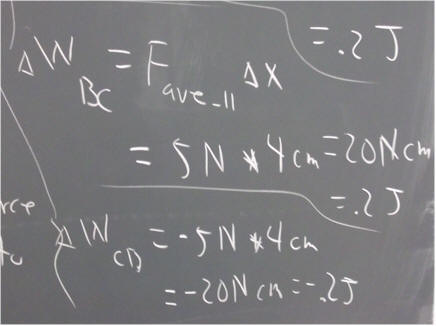 = .2 J
ΔW BC = F ave_|| Δx
= 5 N * 4 cm = 20 N cm
= .2 J
ΔW CD = -5 N * 4 cm
= -20 N cm = -.2 J